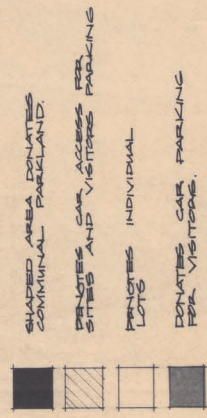 SHADED AREA DONATES
COMMUNAL PARKLAND.
DENOTES CAR ACCESS FOR
SITES AND VISITORS PARKING
DENOTES INDIVIDUAL
LOTS
DONATES CAR PARKING
FOR VISITORS.